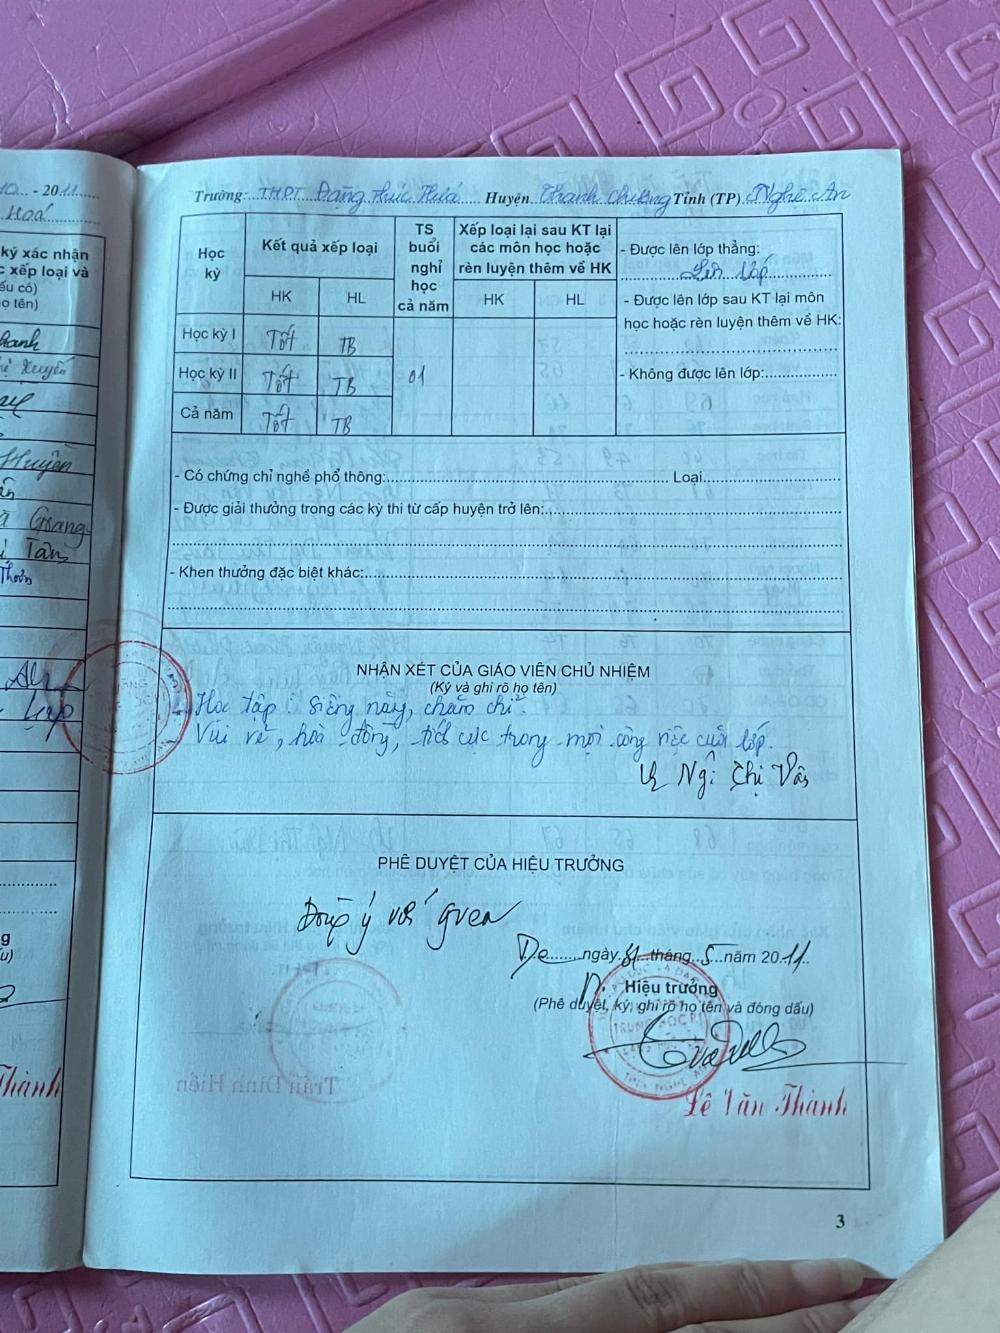 - 2011
Hoá
ký xác nhận
xếp loại và
ếu có)
ọ tên)
Xuyến
Huyền
Giang
Thành
Trường: THPT Đặng Thúc Hứa Huyện Thanh Chương Tỉnh (TP) Nghệ An
Học kỳ
Kết quả xếp loại
TS buổi nghỉ học cả năm
Xếp loại lại sau KT lại các môn học hoặc rèn luyện thêm về HK
HK HL HK HL
Học kỳ I Tốt TB
Học kỳ II Tốt TB 01
Cả năm Tốt TB
- Được lên lớp thẳng:
Lên lớp
- Được lên lớp sau KT lại môn
học hoặc rèn luyện thêm về HK:
- Không được lên lớp:
- Có chứng chỉ nghề phổ thông: Loại
- Được giải thưởng trong các kỳ thi từ cấp huyện trở lên:
- Khen thưởng đặc biệt khác:
NHẬN XÉT CỦA GIÁO VIÊN CHỦ NHIỆM
(Ký và ghi rõ họ tên)
- Học tập: siêng năng, chăm chỉ.
- Vui vẻ, hoà đồng, tích cực trong mọi công việc của lớp.
Ngô Thị Vân
PHÊ DUYỆT CỦA HIỆU TRƯỞNG
Đồng ý với gvcn
ngày 31 tháng 5 năm 2011
Hiệu trưởng
(Phê duyệt, ký, ghi rõ họ tên và đóng dấu)
TRUNG HỌC PT
TỈNH NGHỆ AN
Lê Văn Thành
Trần Đình Hiền
3